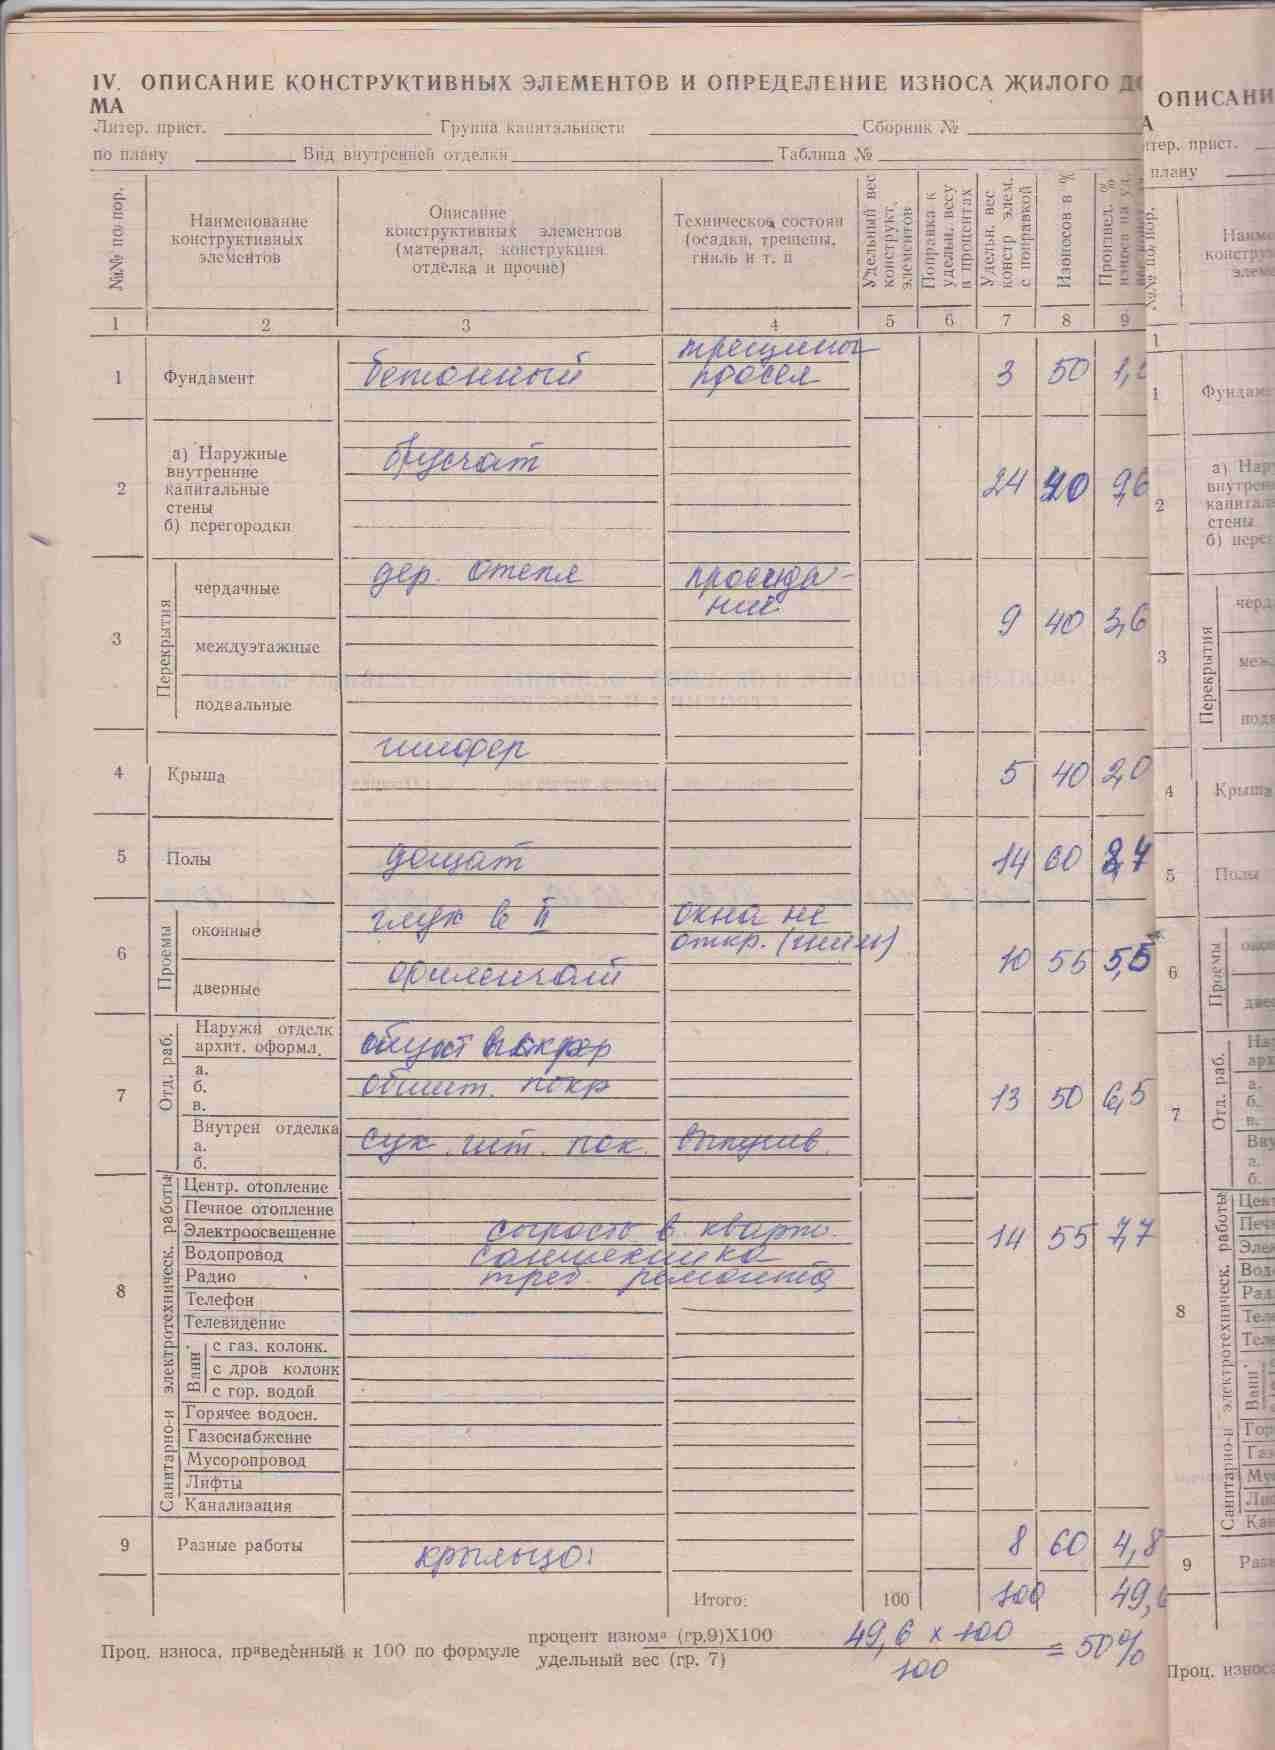 IV. ОПИСАНИЕ КОНСТРУКТИВНЫХ ЭЛЕМЕНТОВ И ОПРЕДЕЛЕНИЕ ИЗНОСА ЖИЛОГО ДО
МА
Литер. прист. Группа капитальности Сборник №
по плану Вид внутренней отделки Таблица №
№№ по пор.
Наименование конструктивных элементов
Описание конструктивных элементов (материал, конструкция отделка и прочие)
Техническое состоян (осадки, трещены, гниль и т. п
Удельный вес конструкт. элементов
Поправка к удельн. весу в процентах
Удельн. вес констр элем. с поправкой
Изоносов в %
Произвед. %
1 2 3 4 5 6 7 8 9
трещины
1 Фундамент бетонный просел 3 50
а) Наружные
внутренние брусчат
2 капитальные 24 40 9,6
стены
б) перегородки
Перекрытия
чердачные дер. отепл проседа-
ние
3 междуэтажные 9 40 3,6
подвальные
шифер
4 Крыша 5 40 2,0
5 Полы дощат 14 60
Проемы
оконные глух в II окна не
откр. (гнилы)
6 10 55 5,5
дверные филенчат
Отд. раб.
Наружн отделк
архит. оформл.
а.
б. обшит. покр
7 в. 13 50 6,5
Внутрен отделка
а. сух. шт. пок. выпучив.
б.
Санитарно-и электротехническ. работы
Центр. отопление
Печное отопление
Электроосвещение сырость в кварт. 14 55 7,7
Водопровод сантехника
Радио треб. ремонта
8 Телефон
Телевидение
Ванн.
с газ. колонк.
с дров колонк
с гор. водой
Горячее водосн.
Газоснабжение
Мусоропровод
Лифты
Канализация
9 Разные работы крыльцо 8 60 4,8
Итого: 100 100 49,6
Проц. износа, праведённый к 100 по формуле процент изнома (гр,9)X100
удельный вес (гр. 7)
49,6 x 100
100
= 50%
ОПИСАНИ
А
итер. прист.
плану
№№ по пор.
Наиме
констру
элеме
1
1 Фундаме
2
а) Нару
внутрен
капитал
стены
б) перег
3 Перекрытия
черда
меж
подв
4 Крыша
5 Полы
6 Проемы
окон
двер
7 Отд. раб.
На
арх
а.
б.
в.
Вну
а.
б.
8 Санитарно-и электротехническ. работы
Цент
Печ
Эле
Вод
Рад
Теле
Теле
Ванн.
Гор
Газ
Мус
Ли
Кан
9 Разн
Проц. износа